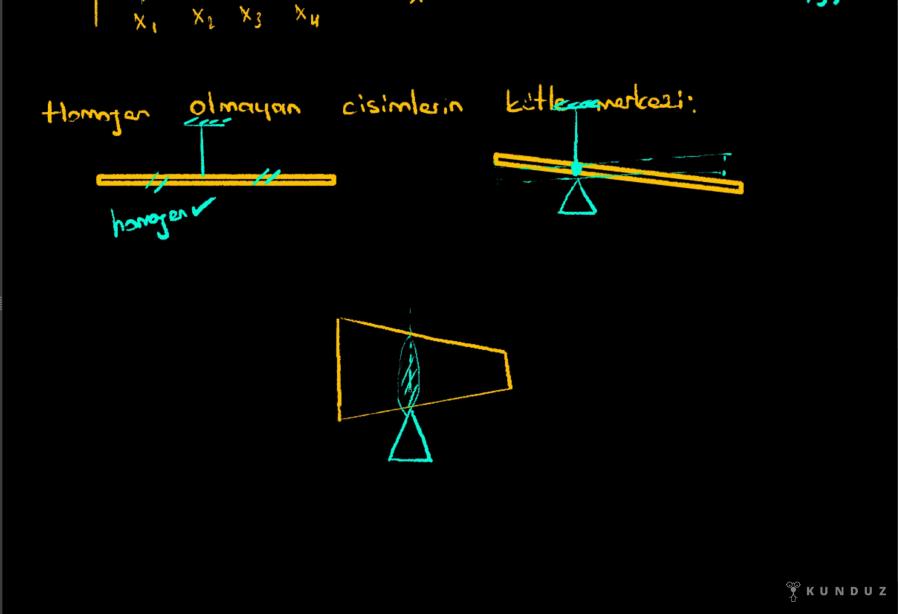 x₁ x₂ x₃ x₄
Homojen olmayan cisimlerin kütle merkezi:
homojen ✓
KUNDUZ